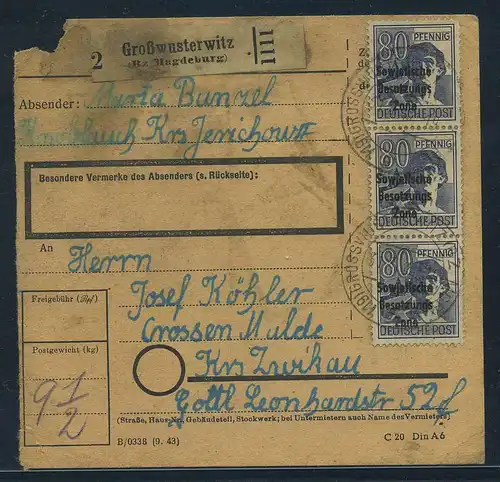 2
Großwusterwitz
(Bz Magdeburg)
1111
Absender: Marta Bunzel
Krs Jerichow II
Besondere Vermerke des Absenders (s. Rückseite):
An
Herrn
Josef Köhler
Crossen Mulde
Krs Zwikau
Gottl Leonhardstr 52f
(Straße, Haus-Nr, Gebäudeteil, Stockwerk; bei Untermietern auch Name des Vermieters)
Freigebühr (Rpf)
Postgewicht (kg)
9 1/2
B/0338 (9. 43)
C 20 Din A6
80 PFENNIG
Sowjetische
Besatzungs
Zone
DEUTSCHE POST
80 PFENNIG
Sowjetische
Besatzungs
Zone
DEUTSCHE POST
80 PFENNIG
Sowjetische
Besatzungs
Zone
DEUTSCHE POST